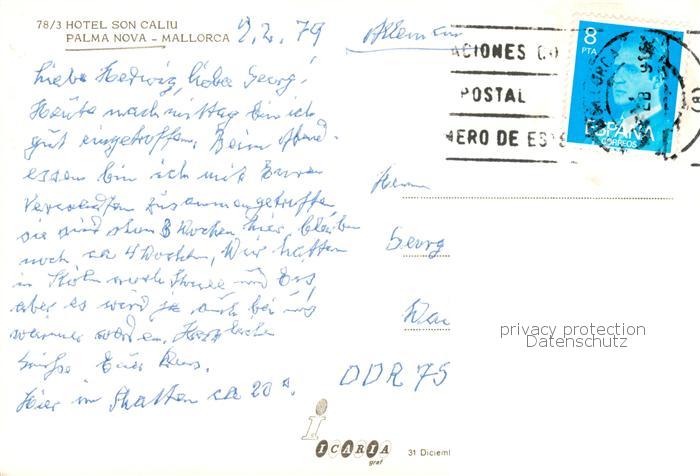 78/3 HOTEL SON CALIU
PALMA NOVA - MALLORCA
9.2.79
Liebe Hedwig, lieber Georg!
Heute nachmittag bin ich
gut eingetroffen. Beim Abend-
essen bin ich mit Euren
zusammengetroffen
sie sind schon 3 Wochen hier, bleiben
noch ca 4 Wochen, Wir hatten
in Köln noch Schnee und Eis
aber es wird ja auch bei uns
wärmer werden. Herzliche
Grüße Euer
Hier im Schatten ca 20°.
ACIONES CO
POSTAL
MERO DE EST
8
PTA
ESPAÑA
CORREOS
Herrn
Georg
DDR 75
privacy protection
Datenschutz
i
ICARIA
graf
31 Diciemb